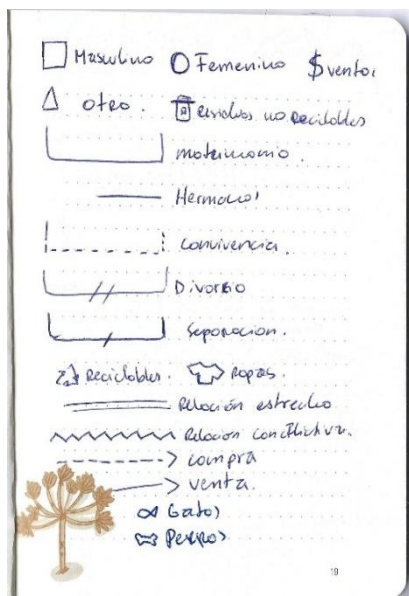 Masculino Femenino $ventas
otro. Residuos no Reciclables
matrimonio.
Hermanos
convivencia.
Divorcio
Separacion.
Reciclables. Ropas.
Relación estrecha
Relacion conflictiva.
compra
venta.
Gatos
Perros
19